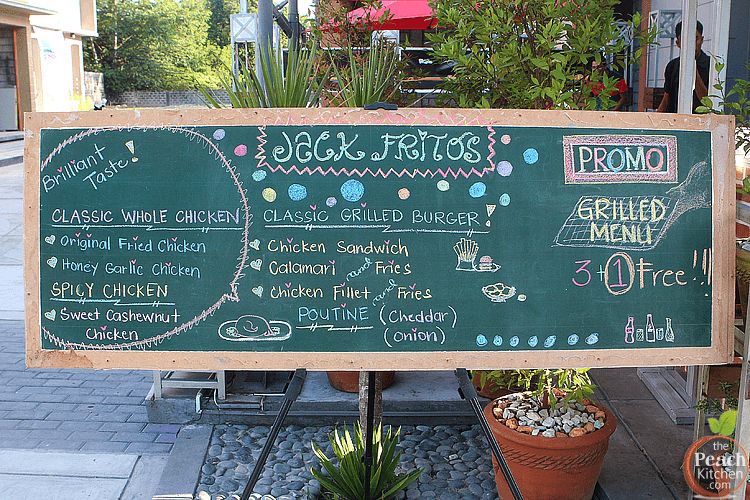 JACK FRITOS
Brilliant
Taste!
CLASSIC WHOLE CHICKEN
Original Fried Chicken
Honey Garlic Chicken
SPICY CHICKEN
Sweet Cashewnut
Chicken
CLASSIC GRILLED BURGER!
Chicken Sandwich
Calamari and Fries
Chicken Fillet and Fries
POUTINE (Cheddar)
(Onion)
PROMO
GRILLED
MENU
3+1 Free!!!
the
Peach
Kitchen
.com